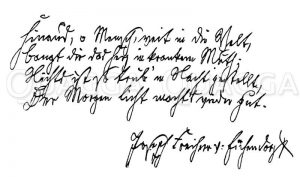 Hinaus, o Mensch, weit in die Welt,
bangt dir das Herz in krankem Muth;
Nichts ist so trüb' in Nacht gestellt,
Der Morgen leicht macht's wieder gut.
Joseph Freiherr v: Eichendorff